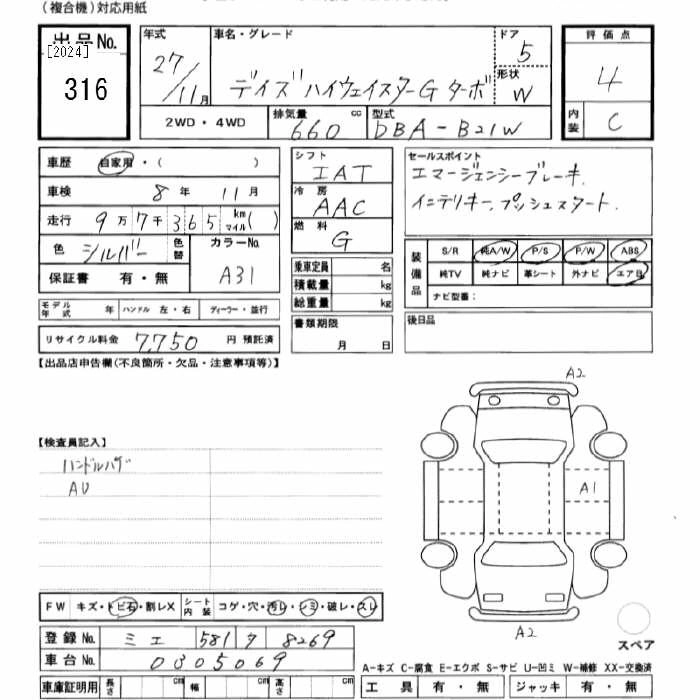 (複合機)対応用紙
出品No.
[2024]
316
年式
27/11月
車名・グレード
デイズハイウェイスターG ターボ
ドア
5
形状
W
評価点
4
内装
C
2WD・4WD
排気量
660 cc
型式
DBA-B21W
車歴 自家用・( )
車検 8年 11月
走行 9万7千365 km マイル( )
色 シルバー 色替
カラーNo.
A31
保証書 有・無
モデル年式 年 ハンドル 左・右 ディーラー・並行
リサイクル料金 7,750 円 預託済
シフト
IAT
冷房
AAC
燃料
G
乗車定員 名
積載量 kg
総重量 kg
書類期限
月 日
セールスポイント
エマージェンシーブレーキ.
インテリキー. プッシュスタート.
装備品
S/R 純A/W P/S P/W ABS
純TV 純ナビ 革シート 外ナビ エアB
ナビ型番:
後日品
【出品店申告欄(不良箇所・欠品・注意事項等)】
【検査員記入】
ハンドルハゲ
AU
A2
A1
A2
スペア
FW キズ・トビ石・割レX シート内装 コゲ・穴・汚レ・シミ・破レ・スレ
登録No. ミエ 581 ワ 8269
車台No. 0305069
車庫証明用 長さ cm 幅 cm 高さ cm
A-キズ C-腐食 E-エクボ S-サビ U-凹ミ W-補修 XX-交換済
工具 有・無 ジャッキ 有・無